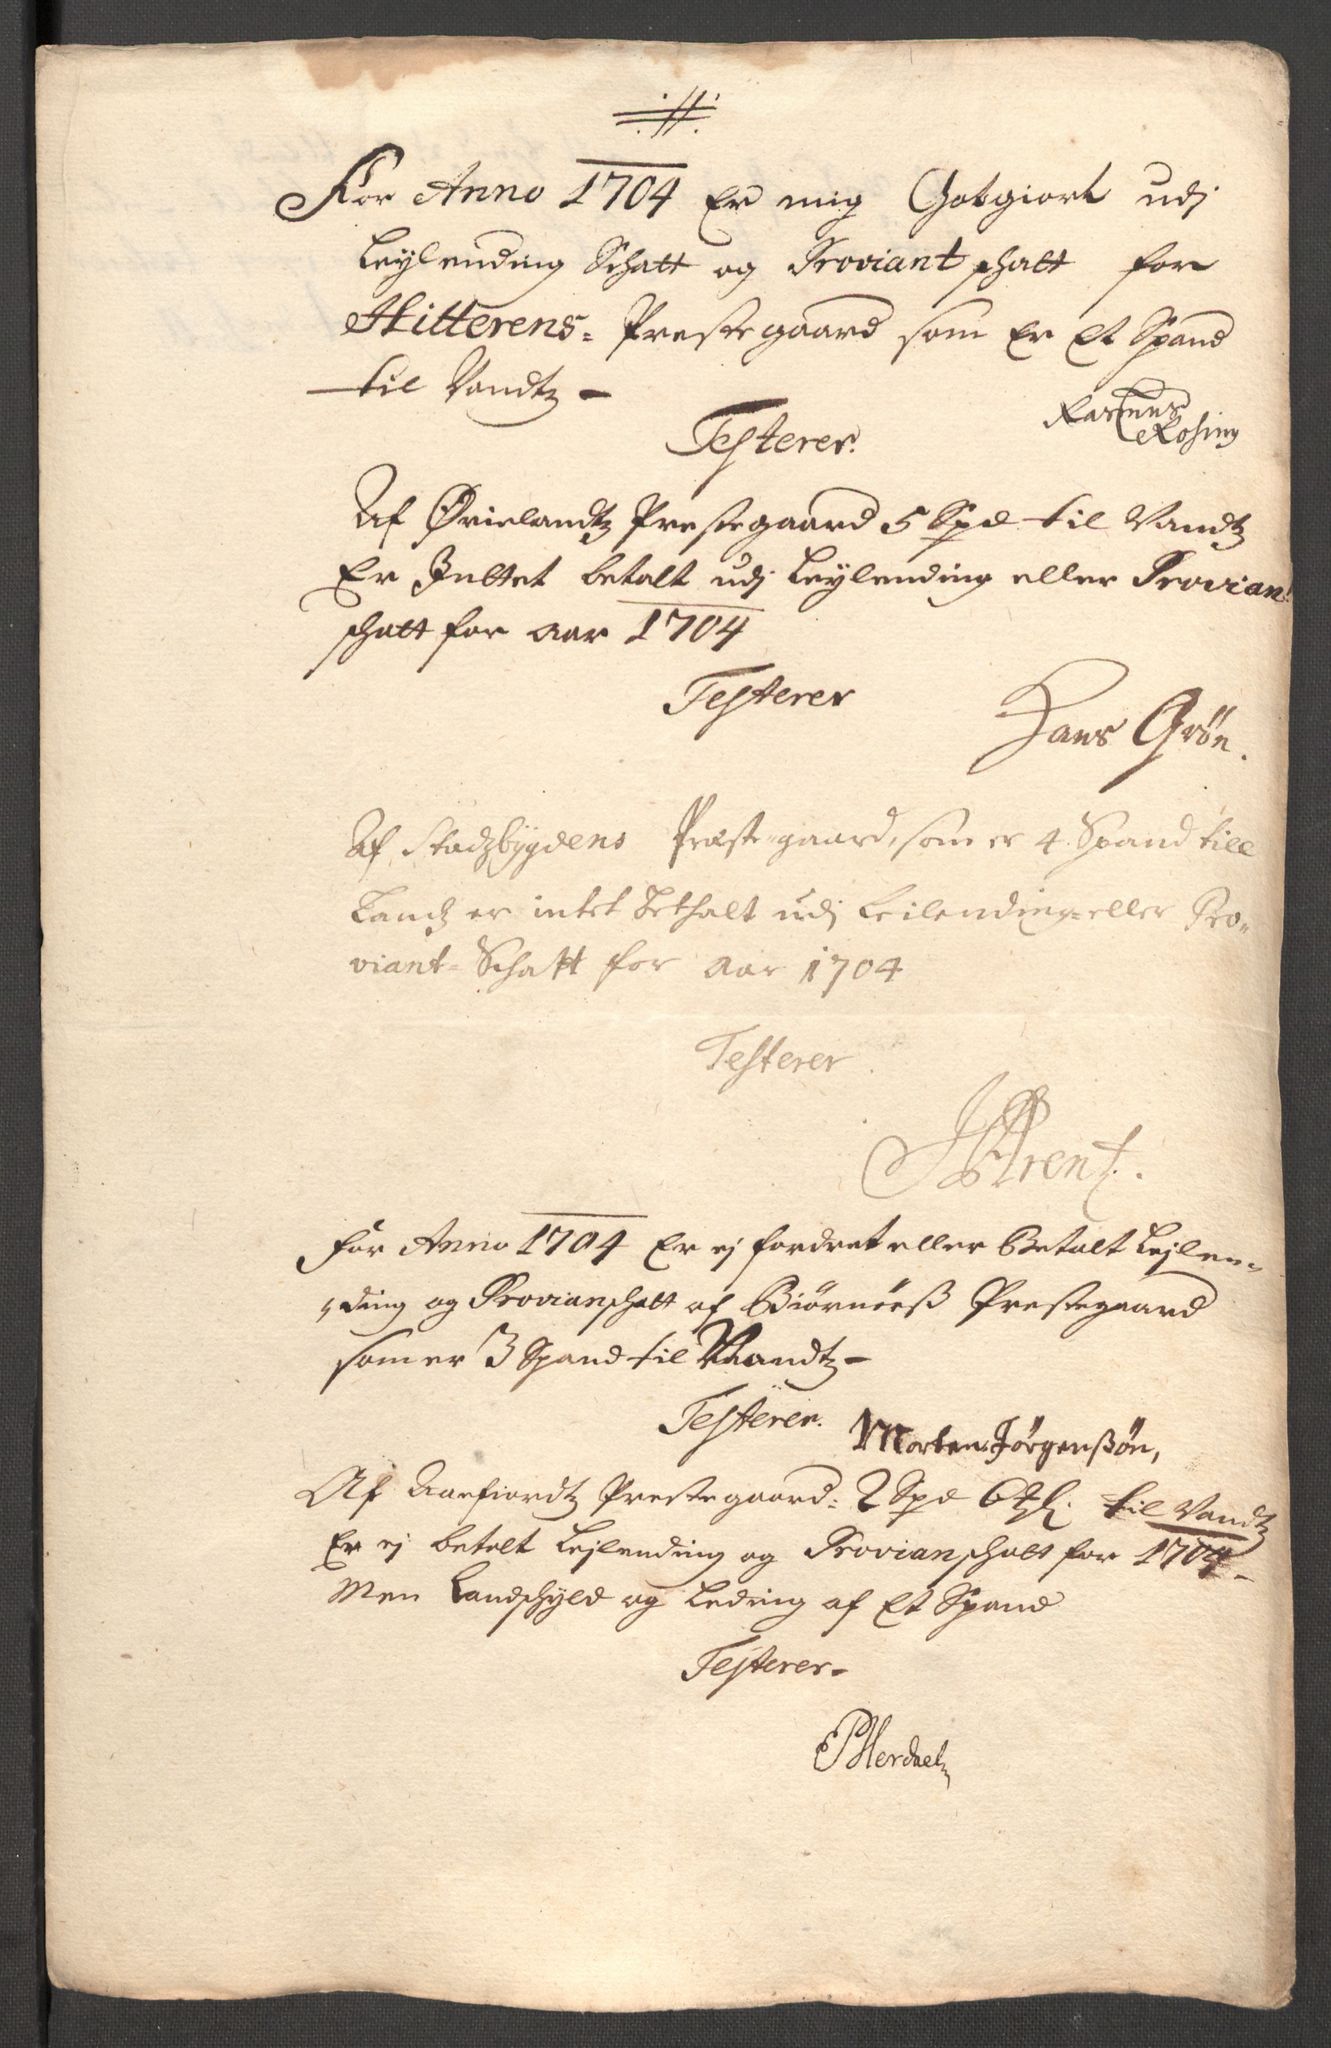 For Anno 1704 Er mig Gotgiort udj
Leylending Schatt og Proviant schatt for
Hitterens= Prestegaard som Er Et Spand
til Landtz –
Testerer. Rasmus Rosing
Af Ørielandtz Prestegaard 5 Spd til Landtz
Er Inttet betalt udj Leylending eller Provian
schatt for aar 1704
Testerer
Hans Grön.
Af Stadzbygdens Præste-gaard, som er 4 Spand till
Landz er intet Bethalt udj Leilending= eller Pro-
viant= Schatt for Aar 1704
Testerer.
Arentz.
For Anno 1704 Er ej fordret eller Betalt Lejlen-
ding og Provianschatt af Biørnøes Prestegaard
som er 3 Spand til Landtz –
Testerer. Morten Jörgenßön,
Af Aaefiordtz Prestegaard: 2 Spd 6 til Landtz
Er ej betalt Lejlending og Provianschatt for 1704 –
Men Landschyld og Leding af Et Spand
Testerer –